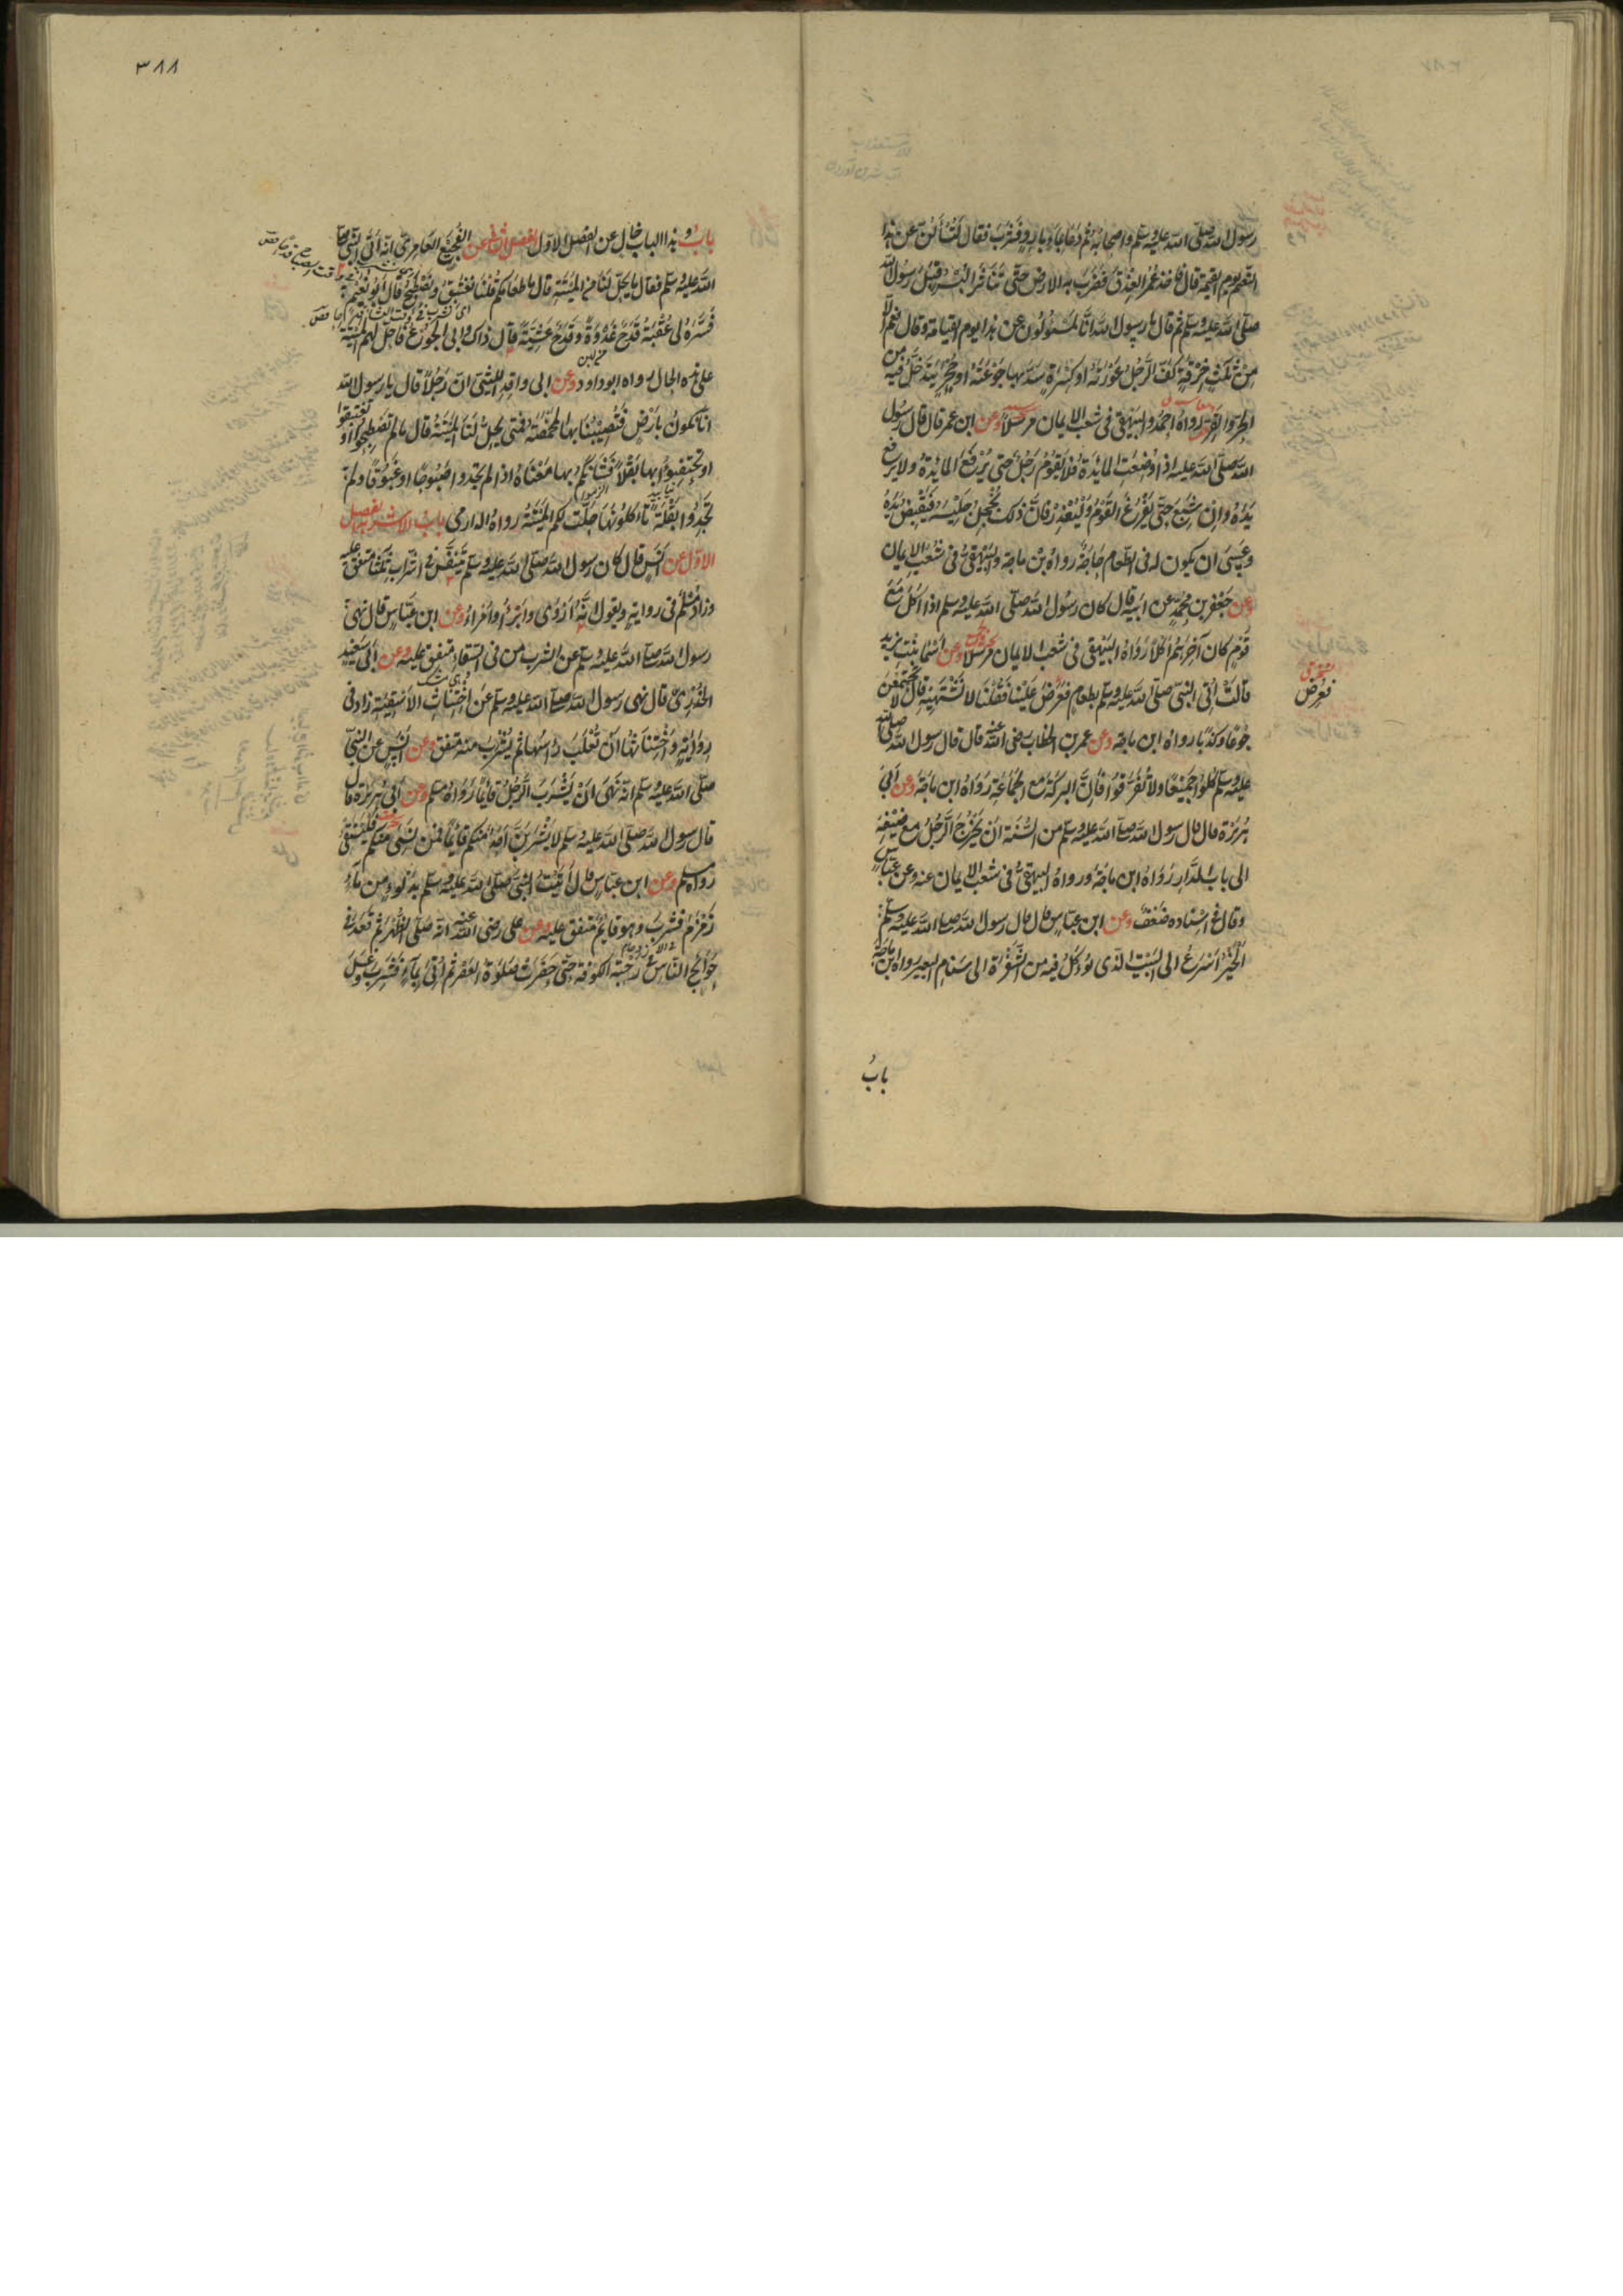 رسول الله صلى الله عليه وسلم واصحابه ثم دعا بماء بارد فشرب فقال لتسألن عن هذا
النعيم يوم القيمة قال فاخذ عمر العذق فضرب به الارض حتى تناثر البسر قبل رسول الله
صلى الله عليه وسلم ثم قال يا رسول الله انا لمسئولون عن هذا يوم القيامة قال نعم الا
من ثلث خرقة كف الرجل عورته او كسرة سد بها جوعته او حجر يتدخل فيه من
الحر والقر رواه احمد والبيهقى فى شعب الايمان مرسلا وعن ابن عمر قال قال رسول
الله صلى الله عليه اذا وضعت المائدة فلا يقوم رجل حتى ترفع المائدة ولا يرفع
يده وان شبع حتى يفرغ القوم وليعذر فان ذلك يخجل جليسه فيقبض يده
وعسى ان يكون له فى الطعام حاجة رواه بن ماجة والبيهقى فى شعب الايمان
وعن جعفر بن محمد عن ابيه قال كان رسول الله صلى الله عليه وسلم اذا اكل مع
قوم كان آخرهم اكلا رواه البيهقى فى شعب الايمان مرسلا وعن اسماء بنت يزيد
قالت اتى النبى صلى الله عليه وسلم بطعام فعرض علينا فقلنا لا نشتهيه قال لا تجتمعن
فعرض
جوعا وكذبا رواه ابن ماجة وعن عمر بن الخطاب رضى الله عنه قال قال رسول الله صلى الله
عليه وسلم كلوا جميعا ولا تفرقوا فان البركة مع الجماعة رواه ابن ماجة وعن ابى
هريرة قال قال رسول الله صلى الله عليه وسلم من السنة ان يخرج الرجل مع ضيفه
الى باب الدار رواه ابن ماجة ورواه البيهقى فى شعب الايمان عنه وعن ابن عباس
وقال فى اسناده ضعف وعن ابن عباس قال قال رسول الله صلى الله عليه وسلم
الخير اسرع الى البيت الذى يؤكل فيه من الشفرة الى سنام البعير رواه ابن ماجة
باب
٣٨٨
باب وهذا الباب خال عن الفصل الاول الفصل الثانى عن الفجيع العامرى انه اتى النبى صلى
الله عليه وسلم فقال ما يحل لنا من الميتة قال ما طعامكم قلنا نغتبق ونصطبح قال ابو نعيم
فسره لى عقبة قدح غدوة وقدح عشية قال ذاك وابى الجوع فاحل لهم الميتة
على هذه الحال رواه ابو داود وعن ابى واقد الليثى ان رجلا قال يا رسول الله
انا نكون بارض فتصيبنا بها المخمصة فمتى يحل لنا الميتة قال ما لم تصطبحوا او تغتبقوا
او تحتفئوا بها بقلا فشأنكم بها معناه اذا لم تجدوا صبوحا او غبوقا ولم
تجدوا بقلة تأكلونها حلت لكم الميتة رواه الدارمى باب الاشربة الفصل
الاول عن انس قال كان رسول الله صلى الله عليه وسلم يتنفس فى الشراب ثلثا متفق عليه
وزاد مسلم فى رواية ويقول انه اروى وابرء وامرأ وعن ابن عباس قال نهى
رسول الله صلى الله عليه وسلم عن الشرب من فى السقاء متفق عليه وعن ابى سعيد
الخدرى قال نهى رسول الله صلى الله عليه وسلم عن اختناث الاسقية زاد فى
رواية واختناثها ان تقلب رأسها ثم يشرب منه متفق وعن انس عن النبى
صلى الله عليه وسلم انه نهى ان يشرب الرجل قائما رواه مسلم وعن ابى هريرة قال
قال رسول الله صلى الله عليه وسلم لا يشربن احد منكم قائما فمن نسى منكم فليستقئ
رواه مسلم وعن ابن عباس قال اتيت النبى صلى الله عليه وسلم بدلو من ماء
زمزم فشرب وهو قايم متفق عليه وعن على رضى الله عنه انه صلى الظهر ثم قعد فى
حوائج الناس فى رحبة الكوفة حتى حضرت صلوة العصر ثم اتى بماء فشرب وغسل